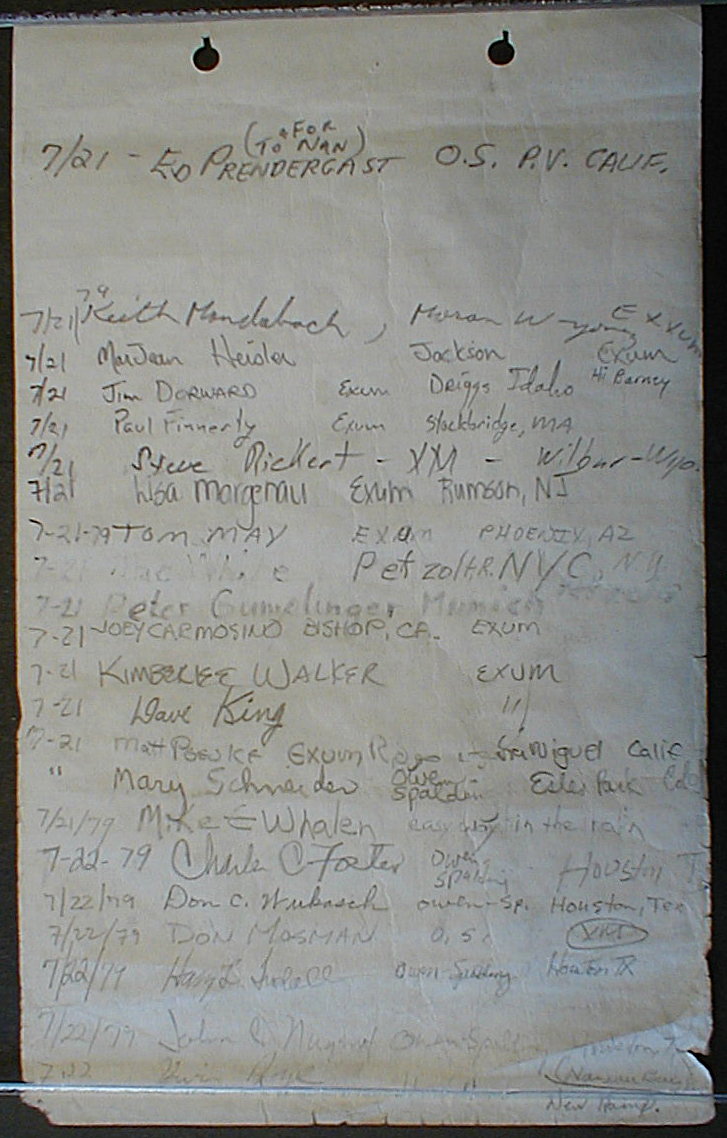 (TO & FOR NAN)
7/21 - ED PRENDERGAST O.S. P.V. CALIF.
7/21/79 Keith Mandabach, Moran Wyoming Exxum
7/21 MarJean Heisler Jackson Exum
7/21 Jim DORWARD Exum Driggs Idaho Hi Barney
7/21 Paul Finnerty Exum Stockbridge, MA
7/21 Steve Rickert - XM - Wilbur-Wyo.
7/21 Lisa Margenau Exum Rumson, NJ
7-21-79 TOM MAY EXUM PHOENIX, AZ
7-21 White Petzoldt R. NYC, N.Y.
7-21 Peter Gumelinger Munich
7-21 JOEY CARMOSINO BISHOP, CA. EXUM
7-21 KIMBERLEE WALKER EXUM
7-21 Dave King "
7-21 Matt EXUM San Miguel Calif
" Mary Schneider Owen Spaldin Estes Park Col
7/21/79 Mike E Whalen easy day in the rain
7-22-79 Charles C Foster Owen Spalding Houston T
7/22/79 Don C. Wukasch Owen-Sp. Houston, Tex
7/22/79 DON MOSMAN O.S.
7/22/79 Owen-Spalding Houston TX
7/22/79 John Owen-Spalding Houston, T
7/22
New Hamp.